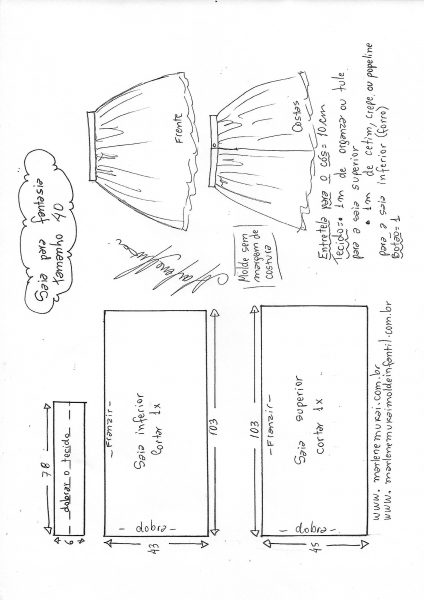 Saia para fantasia
tamanho 40
Frente
Costas
Molde sem
margem de
costura
Entretela para o cós = 10cm
Tecido = • 1m de organza ou tule
para a saia superior
• 1m de cetim, crepe ou popeline
para a saia inferior (forro)
Botão = 1
78
6
dobrar o tecido
Franzir
Saia inferior
Cortar 1x
103
dobra
43
103
Franzir
Saia superior
cortar 1x
dobra
45
www.marlenemukai.com.br
www.marlenemukaimoldeinfantil.com.br